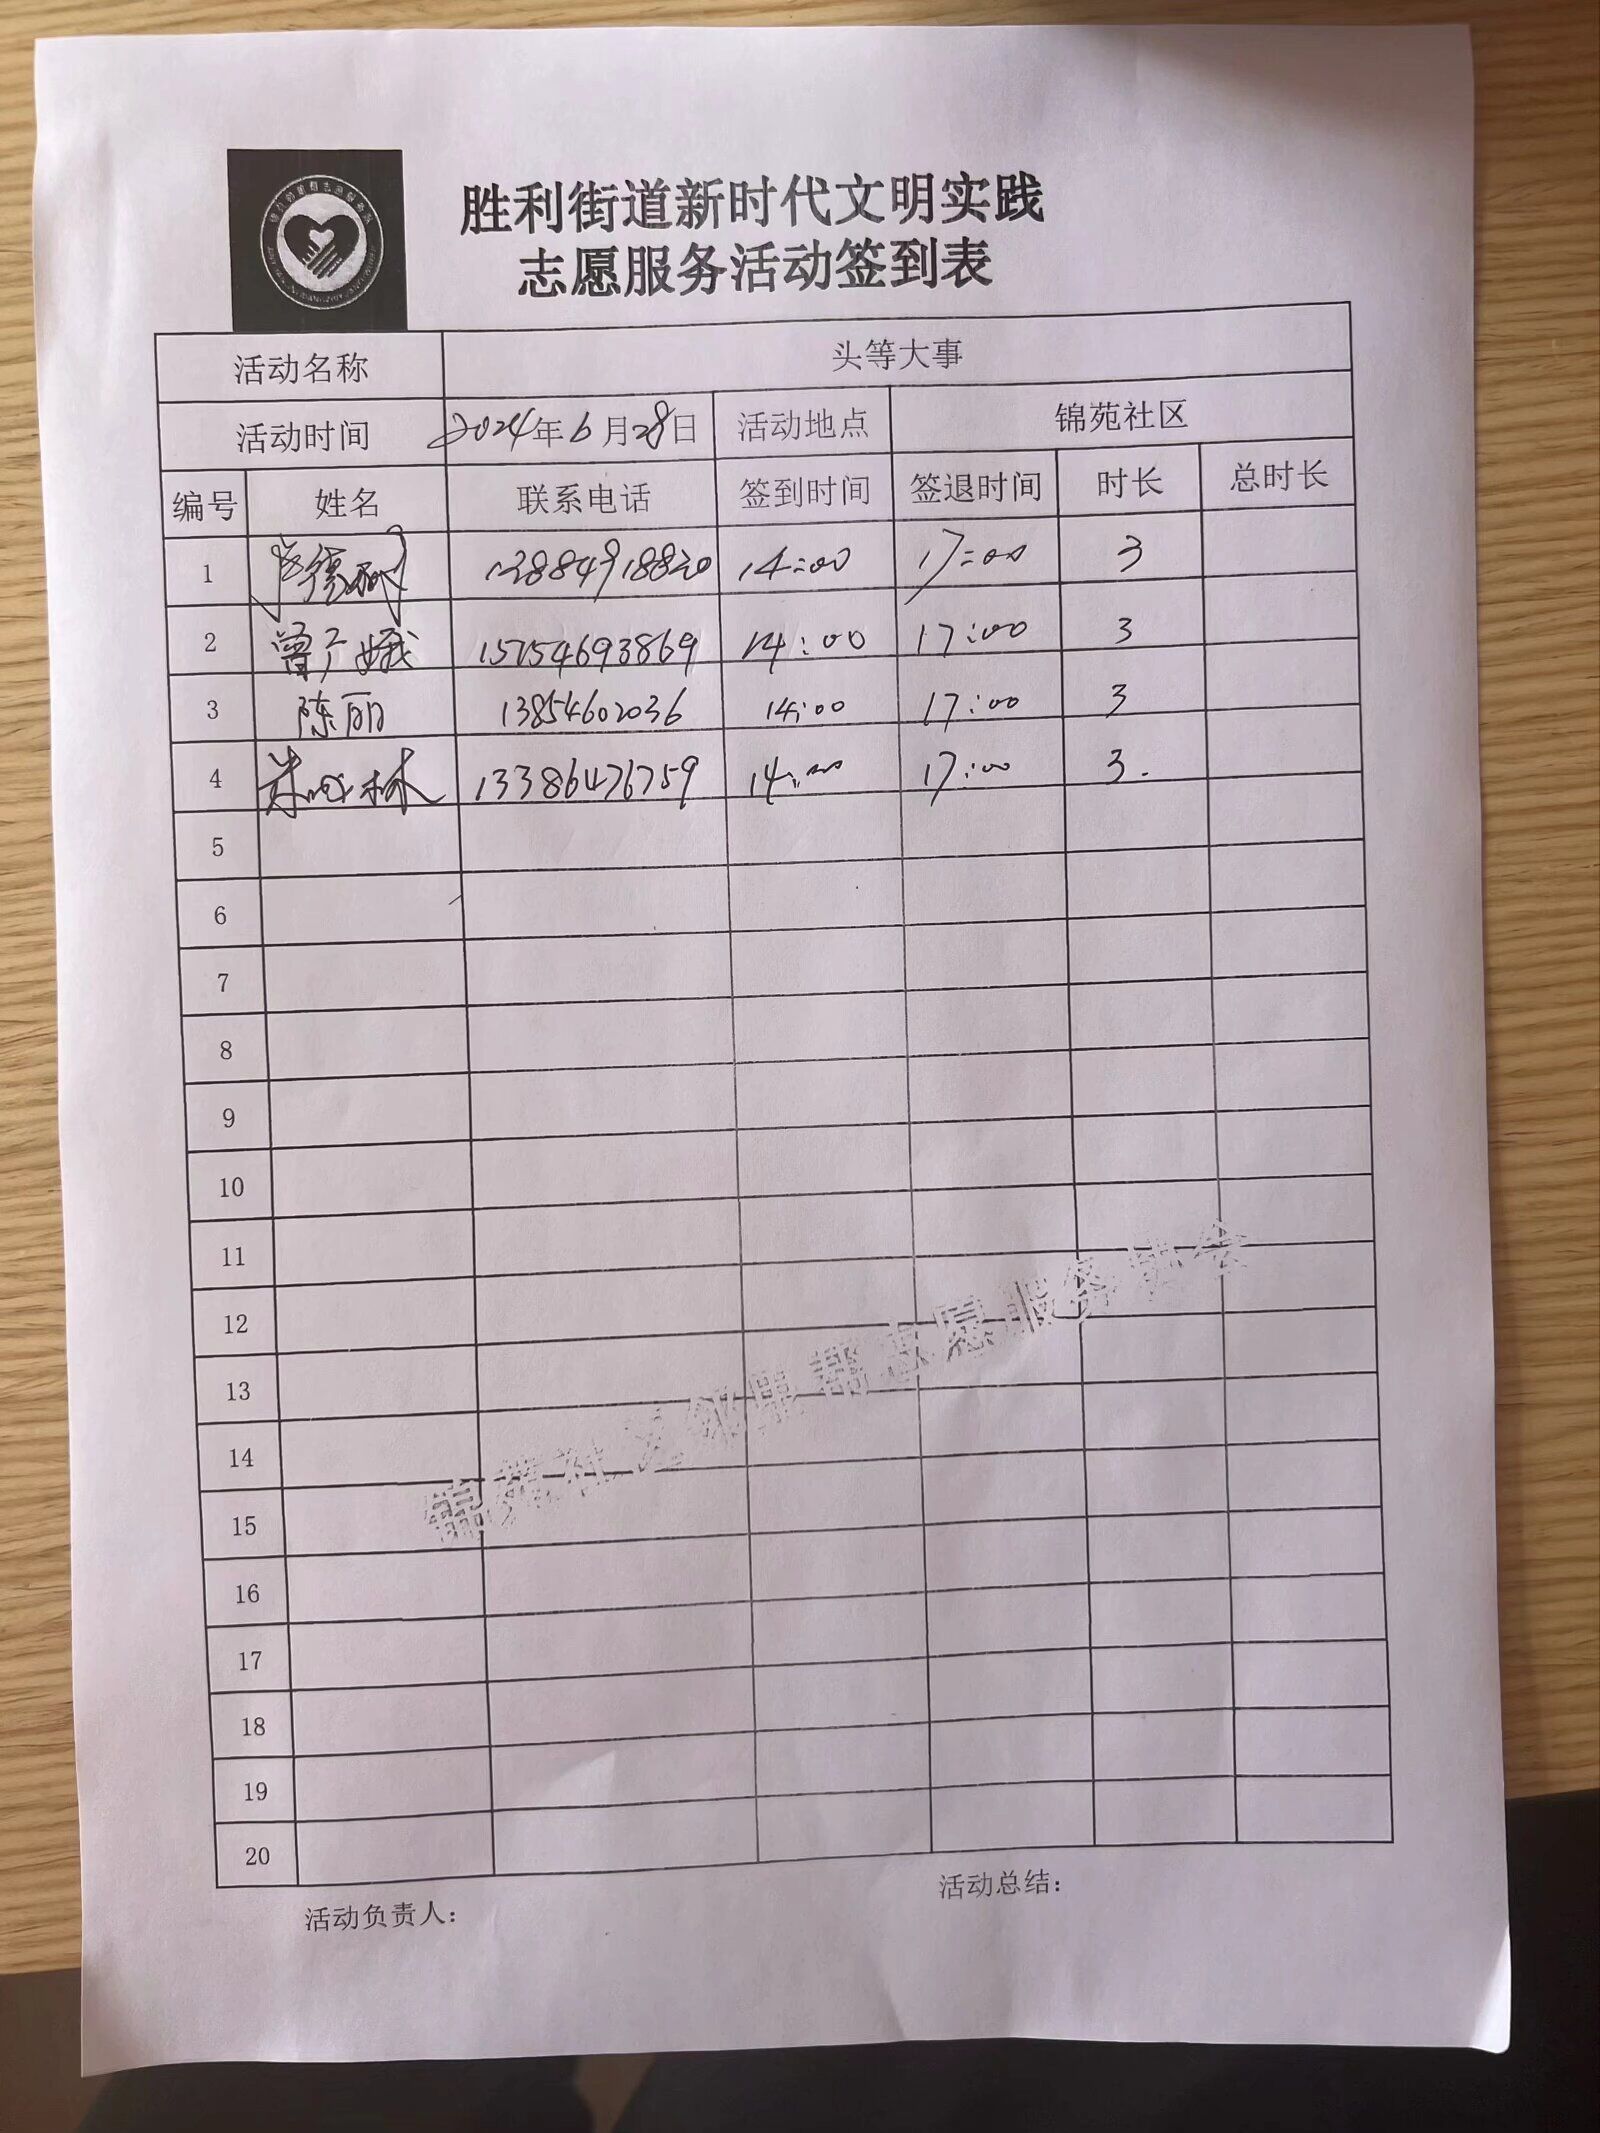 胜利街道新时代文明实践
志愿服务活动签到表
活动名称 头等大事
活动时间 2024年6月28日 活动地点 锦苑社区
编号 姓名 联系电话 签到时间 签退时间 时长 总时长
1 13884918820 14:00 17:00 3
2 曾广娥 15154693869 14:00 17:00 3
3 陈丽 13854602036 14:00 17:00 3
4 13386476759 14:00 17:00 3.
5
6
7
8
9
10
11
12
13
14
15
16
17
18
19
20
锦苑社区邻里帮志愿服务协会
活动负责人： 活动总结：